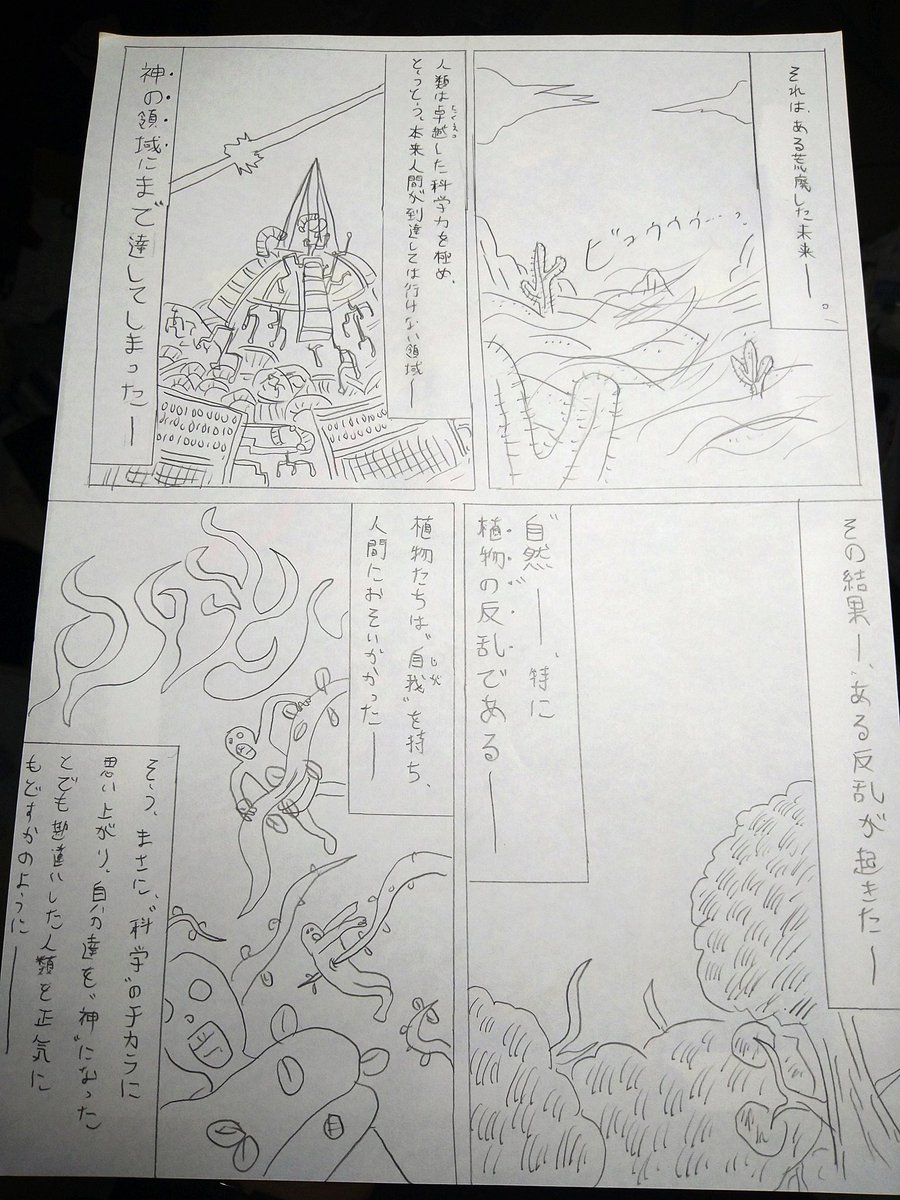 それは、ある荒廃した未来ー。
ビュウゥゥ…。
人類は卓越した科学力を極め、
とうとう、本来人間が到達しては行けない領域ー
神の領域にまで達してしまったー
その結果ー、ある反乱が起きたー
自然ー、特に
植物の反乱であるー
植物たちは“自我”を持ち、
人間におそいかかったー
そう、まさに、“科学”のチカラに
思い上がり、自分達を“神”になった
とでも勘違いした人類を正気に
もどすかのようにー